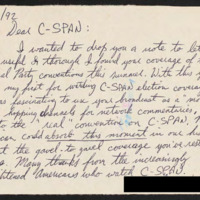 /92
Dear C-SPAN:
I wanted to drop you a note to let
useful I thought I found your coverage of
al Party conventions this summer. With this
my first for watching C-SPAN election coverage
as fascinating to use your broadcast as a "mo
hopping channels for network commentaries,
to the "real" convention on C-SPAN.
can could absorb this moment in our
the gavel-to-gavel coverage you've
Many thanks from the increasingly
lightened Americans who watch C-SPAN.